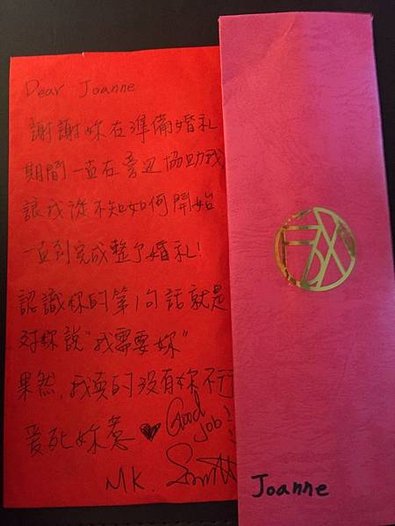 Dear Joanne
謝謝妳在準備婚禮
期間一直在旁邊協助我
讓我從不知如何開始
一直到完成整個婚禮!
認識妳的第1句話就是
對妳說"我需要妳"
果然,我真的沒有妳不行
愛死妳 ♥ Good
job!
MK.
Joanne